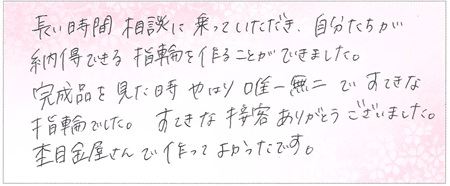 長い時間 相談に乗っていただき、自分たちが
納得できる指輪を作ることができました。
完成品を見た時 やはり唯一無二ですてきな
指輪でした。 すてきな接客ありがとうございました。
杢目金屋さんで作ってよかったです。